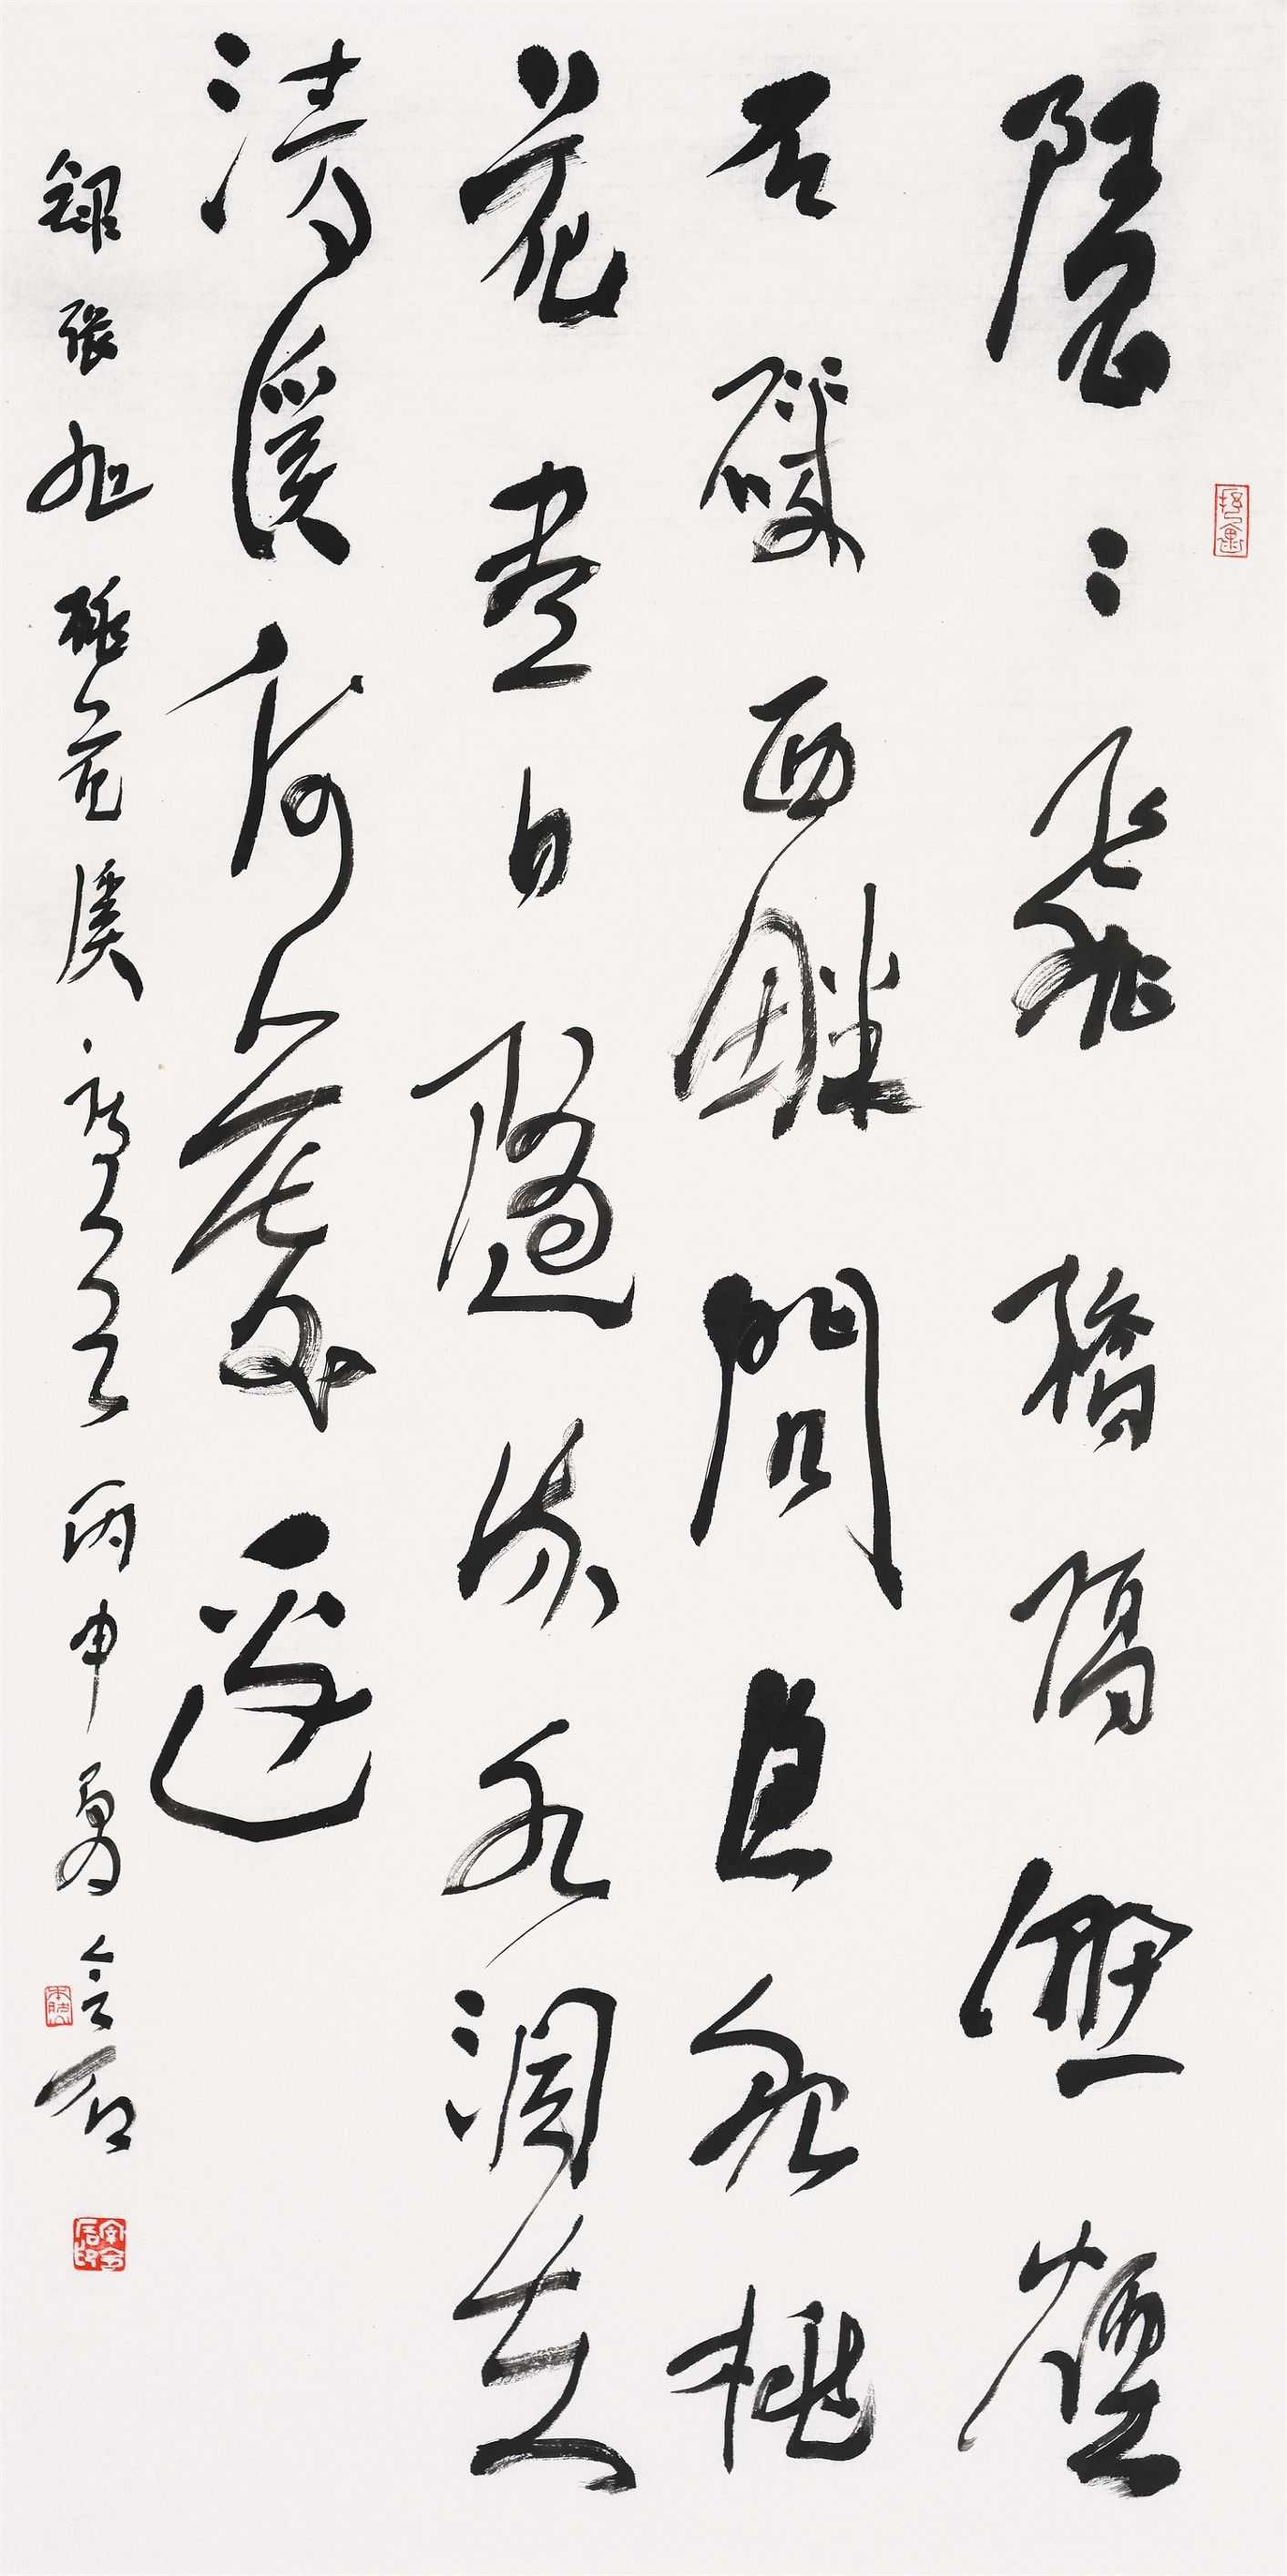 隱〻飛橋隔野煙
石磯西畔問漁船桃
花盡日隨流水洞在
清溪何處邊
録張旭桃花溪 丙申夏